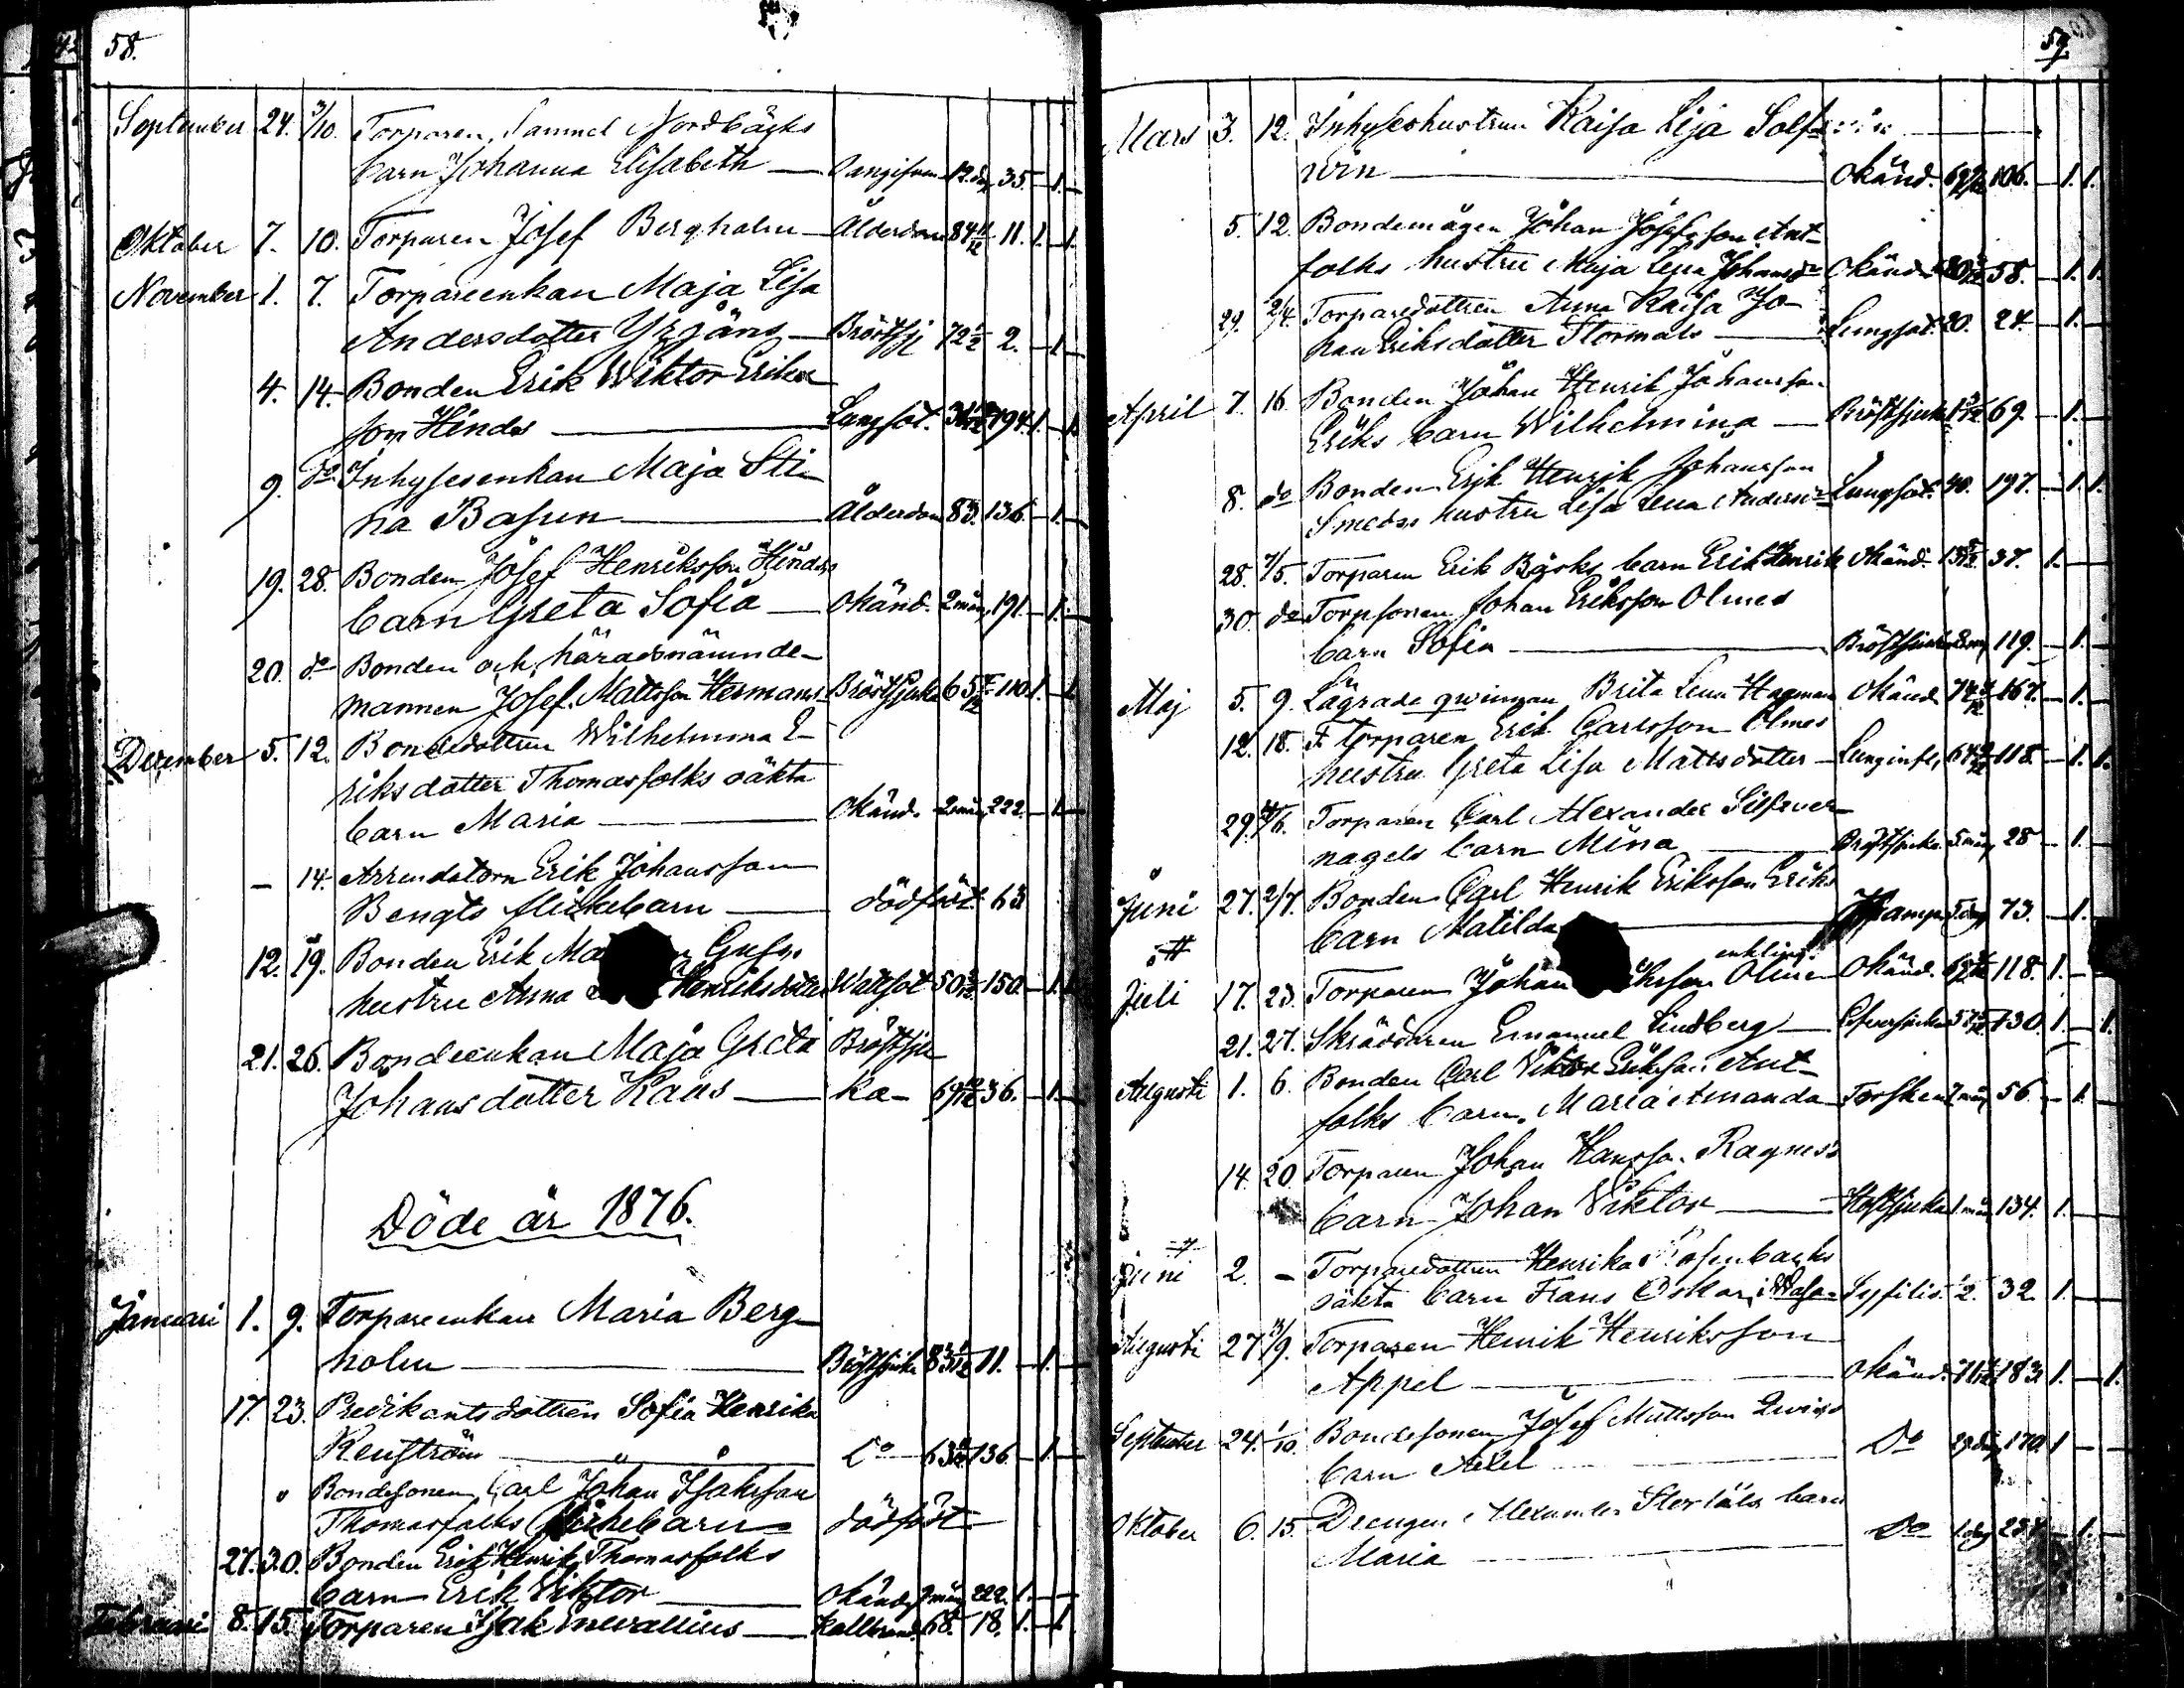 58.
September 24. 3/10. Torparen Samuel Nordbäcks
barn Johanna Elisabeth — 12 dag 35. 1.
Oktober 7. 10. Torparen Josef Bergholm — Ålderdom 84 11/12 11. 1. 1.
November 1. 7. Torpareenkan Maja Lisa
Andersdotter Yrjäns — Bröstsj 72 1/2 2. 1.
4. 14. Bonden Erik Wiktor Eriks
son Hinds — Lungsot. 194. 1. 1.
9. do Inhysesenkan Maja Sti
na Basun — Ålderdom 83. 136. 1.
19. 28. Bonden Josef Henriksson Hinds
barn Greta Sofia — Okänd. 2 mån, 191. 1.
20. do Bonden och häradsnämnde-
mannen Josef Mattsson Hermans Bröstsjuka 65 110. 1. 1.
December 5. 12. Bondedottren Wilhelmina E-
riksdotter Thomasfolks oäkta
barn Maria — Okänd. 2 mån, 222. 1.
— 14. Arrendatorn Erik Johansson
Bengts flickebarn — dödfödt 63
12. 19. Bonden Erik
hustru Anna Henriksdotter Wattsot 50 150. 1. 1.
21. 26. Bondeenkan Maja Greta Bröstsju
Johansdotter Kaus — ka — 69 36. 1.
Döde år 1876.
Januari 1. 9. Torpareenkan Maria Berg-
holm — Bröstsjuka 83 11. 1.
17. 23. Predikantsdottren Sofia Henrika
Renström — do 63 136 1.
" Bondesonen Carl Johan Isaksson
Thomasfolks barn dödfödt —
27. 30. Bonden Erik Henrik Thomasfolks
barn Erik Viktor — Okänd, mån 222. 1.
Februari 8. 15. Torparen Isak — Kallbrand. 68. 18. 1. 1
59.
Mars 3. 12. Inhyseshustrun Kaisa Lisa Solf
win — Okänd. 106. 1. 1.
5. 12. Bondemågen Johan Josefsson Ant-
folks hustru Maja Lena Johansdr Okänd 58. 1. 1.
29. 2/4. Torparedottren Anna Kaisa Jo-
han Eriksdotter Stormåls — Lungsot. 20. 24. 1.
April 7. 16. Bonden Johan Henrik Johansson
Eriks barn Wilhelmina — Bröstsjuka 69. 1.
8. do Bonden Erik Henrik Johansson
Smeds hustru Lisa Lena Andersdr Lungsot. 197. 1. 1.
28. 7/5. Torparen Erik Bäcks barn Erik Henrik Okänd. 37. 1.
30. do Torpsonen Johan Eriksson Olmes
barn Sofia — Bröstsjuka 119. 1.
Maj 5. 9. Lägrade qwinnan Brita Lena Hagman Okänd 167. 1.
12. 18. F. torparen Erik Carlsson Olmes
hustru Greta Lisa Mattsdotter — Lunginfl, 64 118. 1. 1.
29. 4/6. Torparen Carl Alexander Silfver-
nagels barn Mina — Bröstsjuka. 5 mån, 28 1.
Juni 27. 2/7. Bonden Carl Henrik Eriksson Eriks
barn Matilda — Kramp 5 dag 73. 1.
enkling
Juli 17. 23. Torparen Johan Olmes Okänd. 118. 1.
21. 27. Skräddaren Emanuel Lindberg — 57 130. 1. 1.
Augusti 1. 6. Bonden Carl Viktor Eriksson Ant-
folks barn Maria Amanda Torsken 2 mån, 56 1.
14. 20. Torparen Johan Hansson Ragnes's
barn Johan Viktor — Hostsjuka 1 mån 134. 1.
Juni 2. — Torparedottren Henrika Rosenbacks
oäkta barn Frans Oskar, i Wasa Syfilis. 2. 32. 1.
Augusti 27. /9. Torparen Henrik Henriksson
Appel — Okänd. 183 1. 1.
September 24. 1/10. Bondesonen Josef Mattsson
barn Axel — Do 170 1
Oktober 6. 15. Drengen Alexander barn
Maria — Do 1 dag 1.